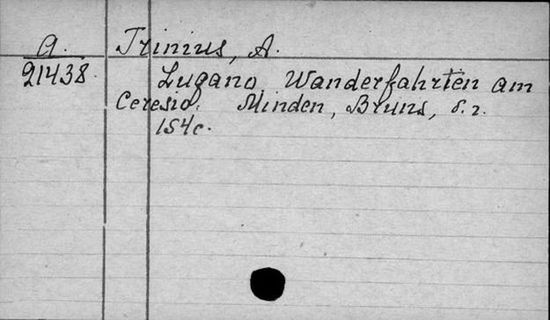 A. Trinius, A.
21438. Lugano. Wanderfahrten am
Ceresio. Minden, Bruns, s. г.
154 с.